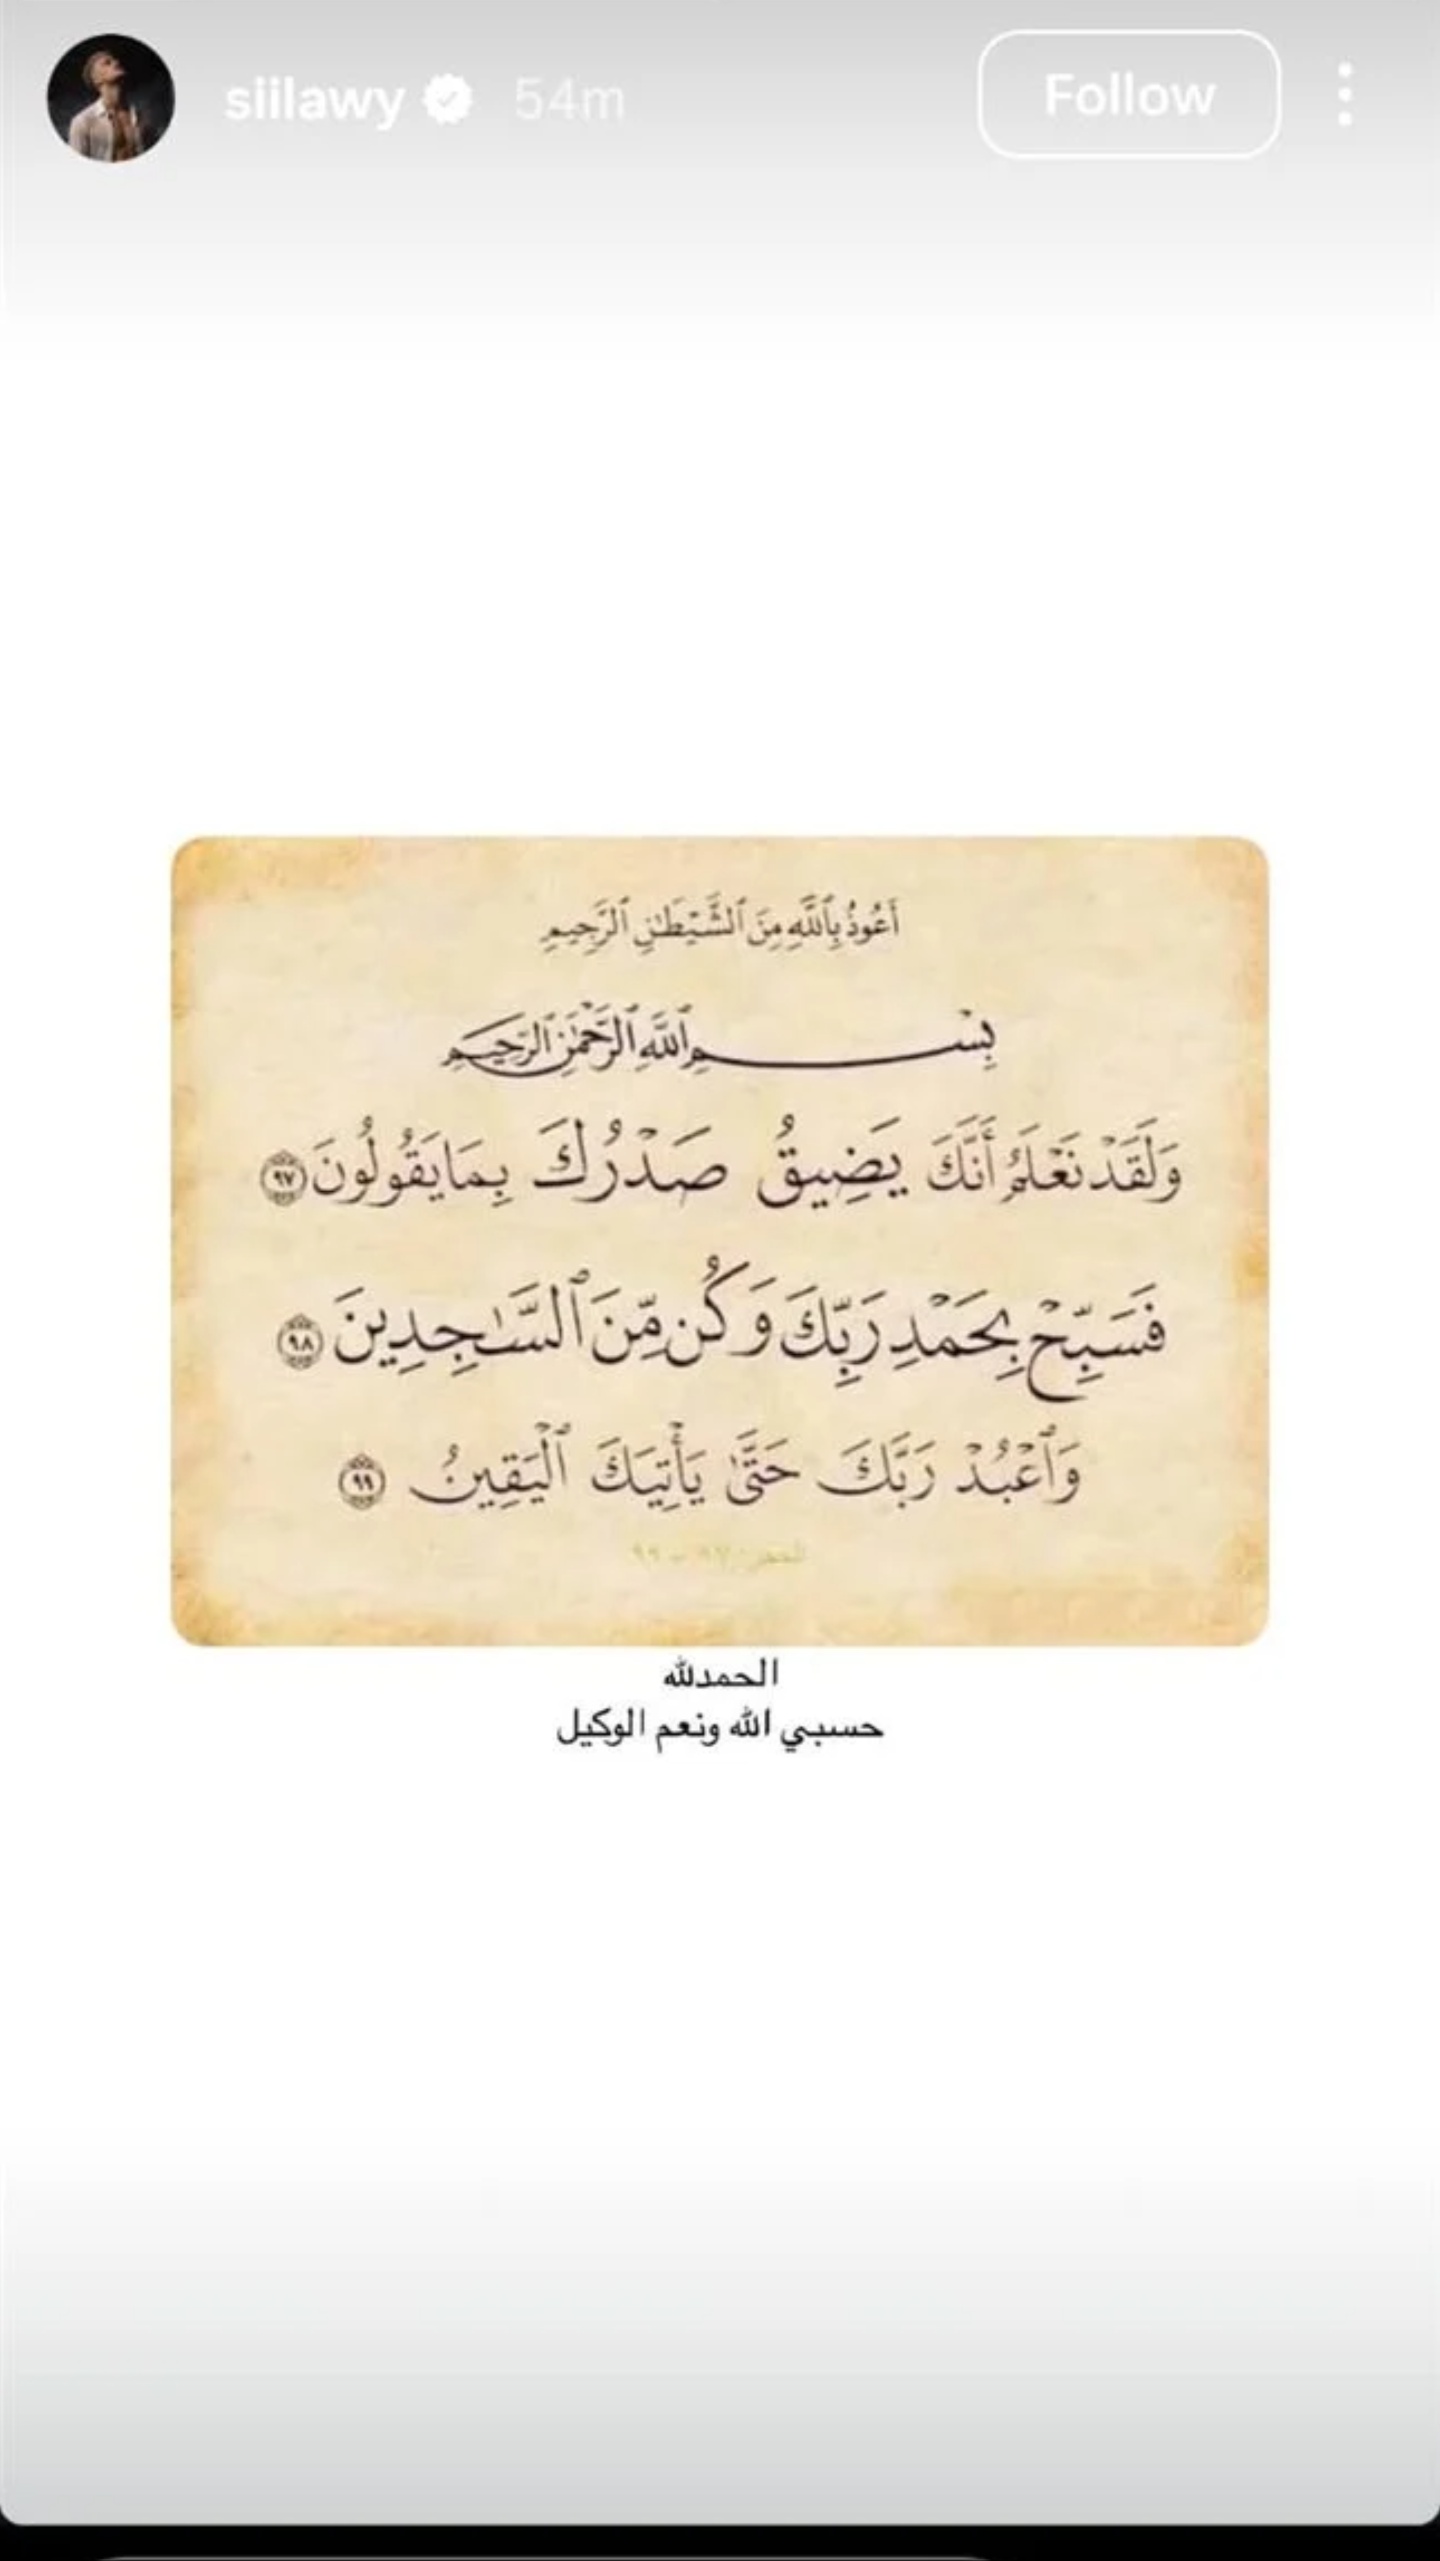 siilawy 54m Follow
أَعُوذُ بِٱللَّهِ مِنَ ٱلشَّيْطَٰنِ ٱلرَّجِيمِ
بِسْمِ ٱللَّهِ ٱلرَّحْمَٰنِ ٱلرَّحِيمِ
وَلَقَدْ نَعْلَمُ أَنَّكَ يَضِيقُ صَدْرُكَ بِمَا يَقُولُونَ ٩٧
فَسَبِّحْ بِحَمْدِ رَبِّكَ وَكُن مِّنَ ٱلسَّٰجِدِينَ ٩٨
وَٱعْبُدْ رَبَّكَ حَتَّىٰ يَأْتِيَكَ ٱلْيَقِينُ ٩٩
الحجر: ٩٧ - ٩٩
الحمدلله
حسبي الله ونعم الوكيل